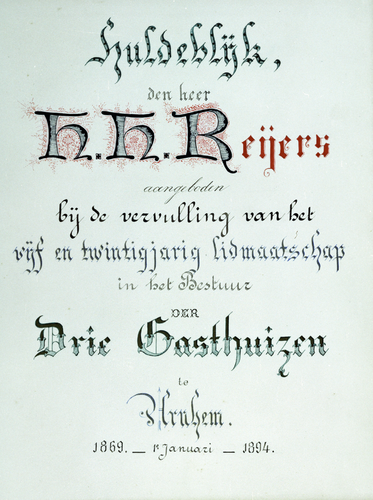 Huldeblijk,
den heer
H. H. Reijers
aangeboden
bij de vervulling van het
vijf en twintigjarig lidmaatschap
in het Bestuur
DER
Drie Gasthuizen
te
Arnhem.
1869. — 1e Januari — 1894.